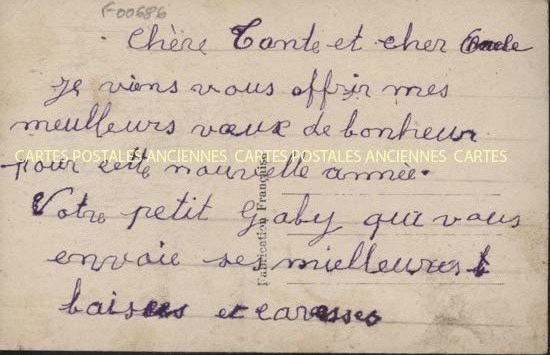 F00686
Chère Tante et cher Oncle
je viens vous offrir mes
meulleurs vœux de bonheur
CARTES POSTALES ANCIENNES CARTES POSTALES ANCIENNES CARTES
pour cette nouvelle année.
Votre petit Gaby qui vous
envoie ses mielleures
baisers et caresses
Fabrication Française